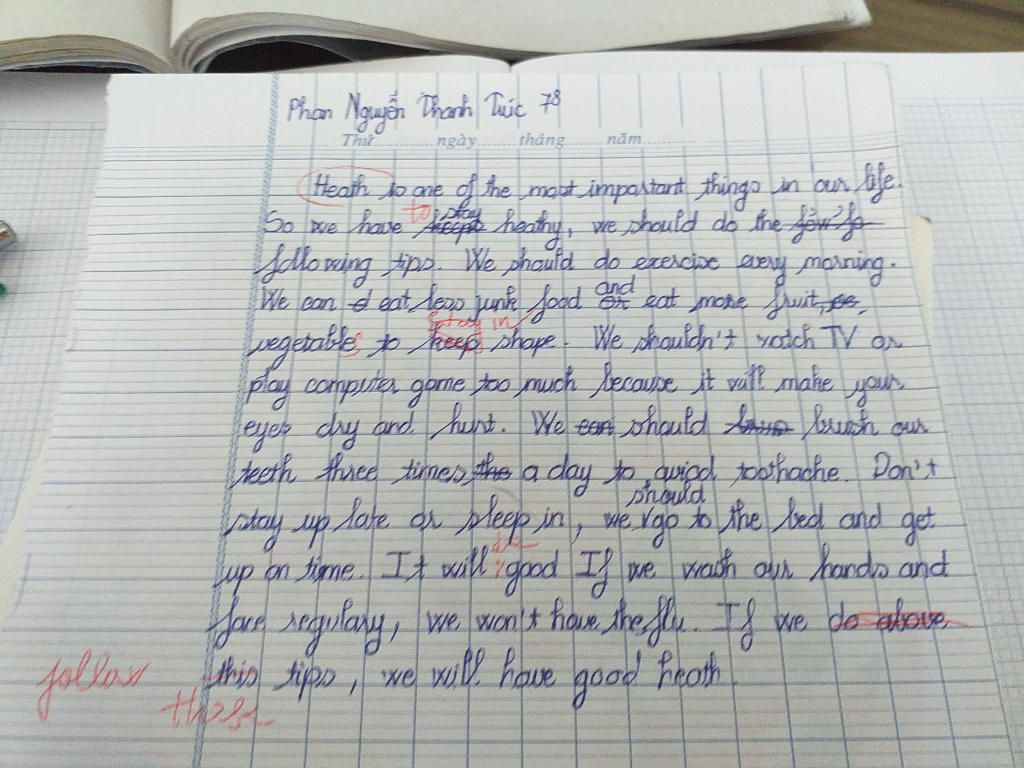 Phan Nguyễn Thanh Trúc 78
Thứ ngày tháng năm
Heath is one of the most important things in our life.
to stay
So we have keep heathy, we should do the
following tips. We should do exercise every morning.
and
We can eat less junk food or eat more fruit,
Stay in
vegetables to keep shape. We shouldn't watch TV or
play computer game too much because it will make your
eyes dry and hurt. We can should brush our
teeth three times the a day to avoid toothache. Don't
should
stay up late or sleep in, we go to the bed and get
be
up on time. It will good If we wash our hands and
face regulary, we won't have the flu. If we do above
follow this tips, we will have good heath.
these